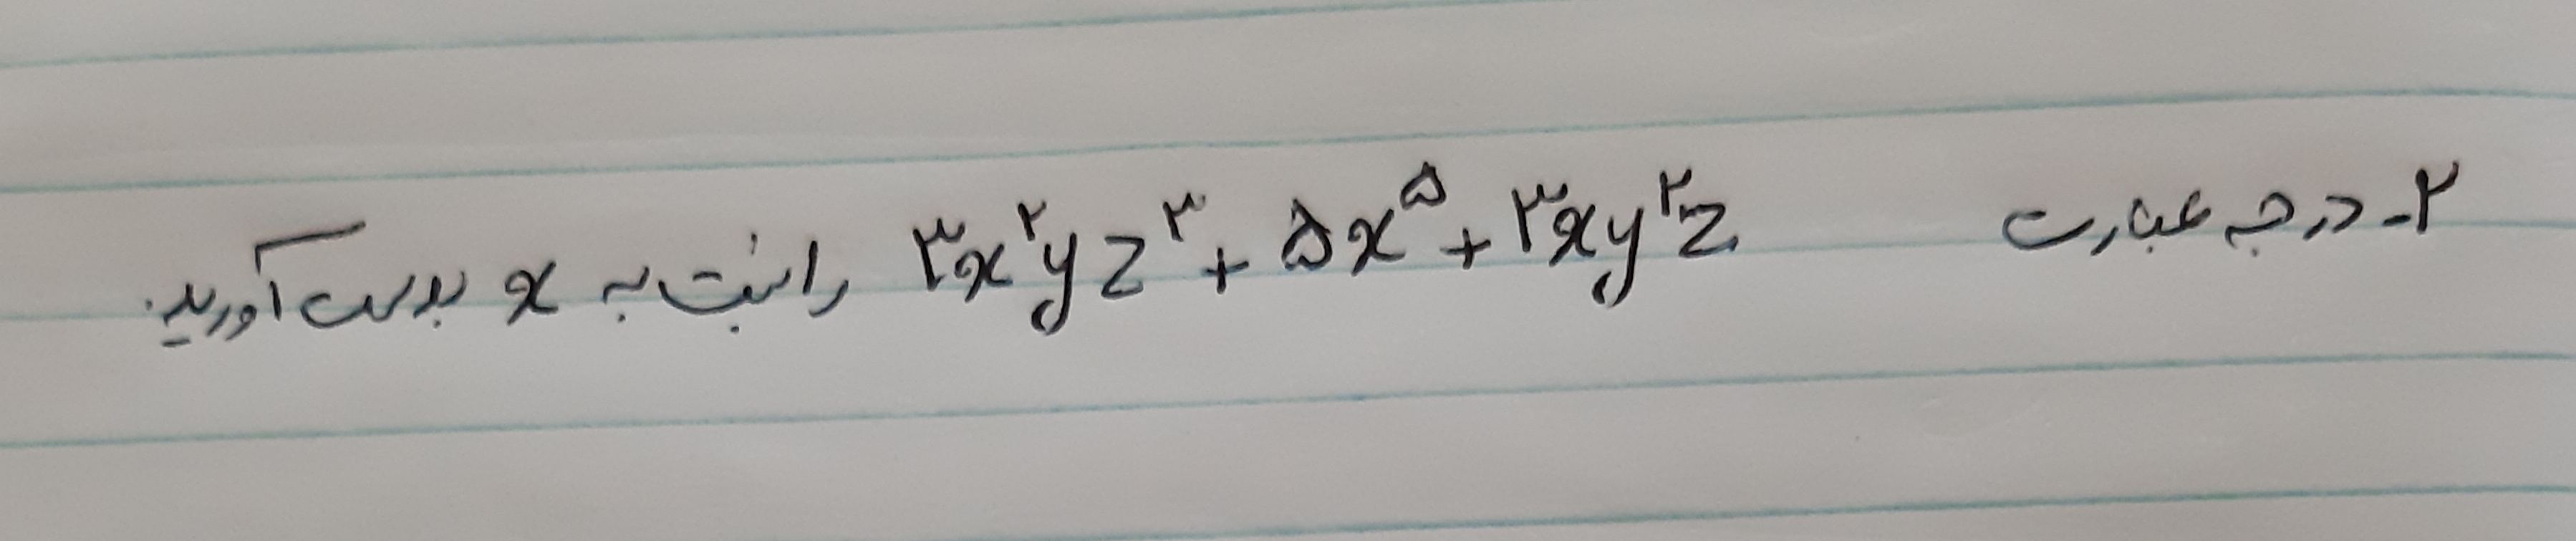 ۲- درجه عبارت ۳x^۲yz^۳ + ۵x^۵ + ۳xy^۲z را نسبت به x بدست آورید.